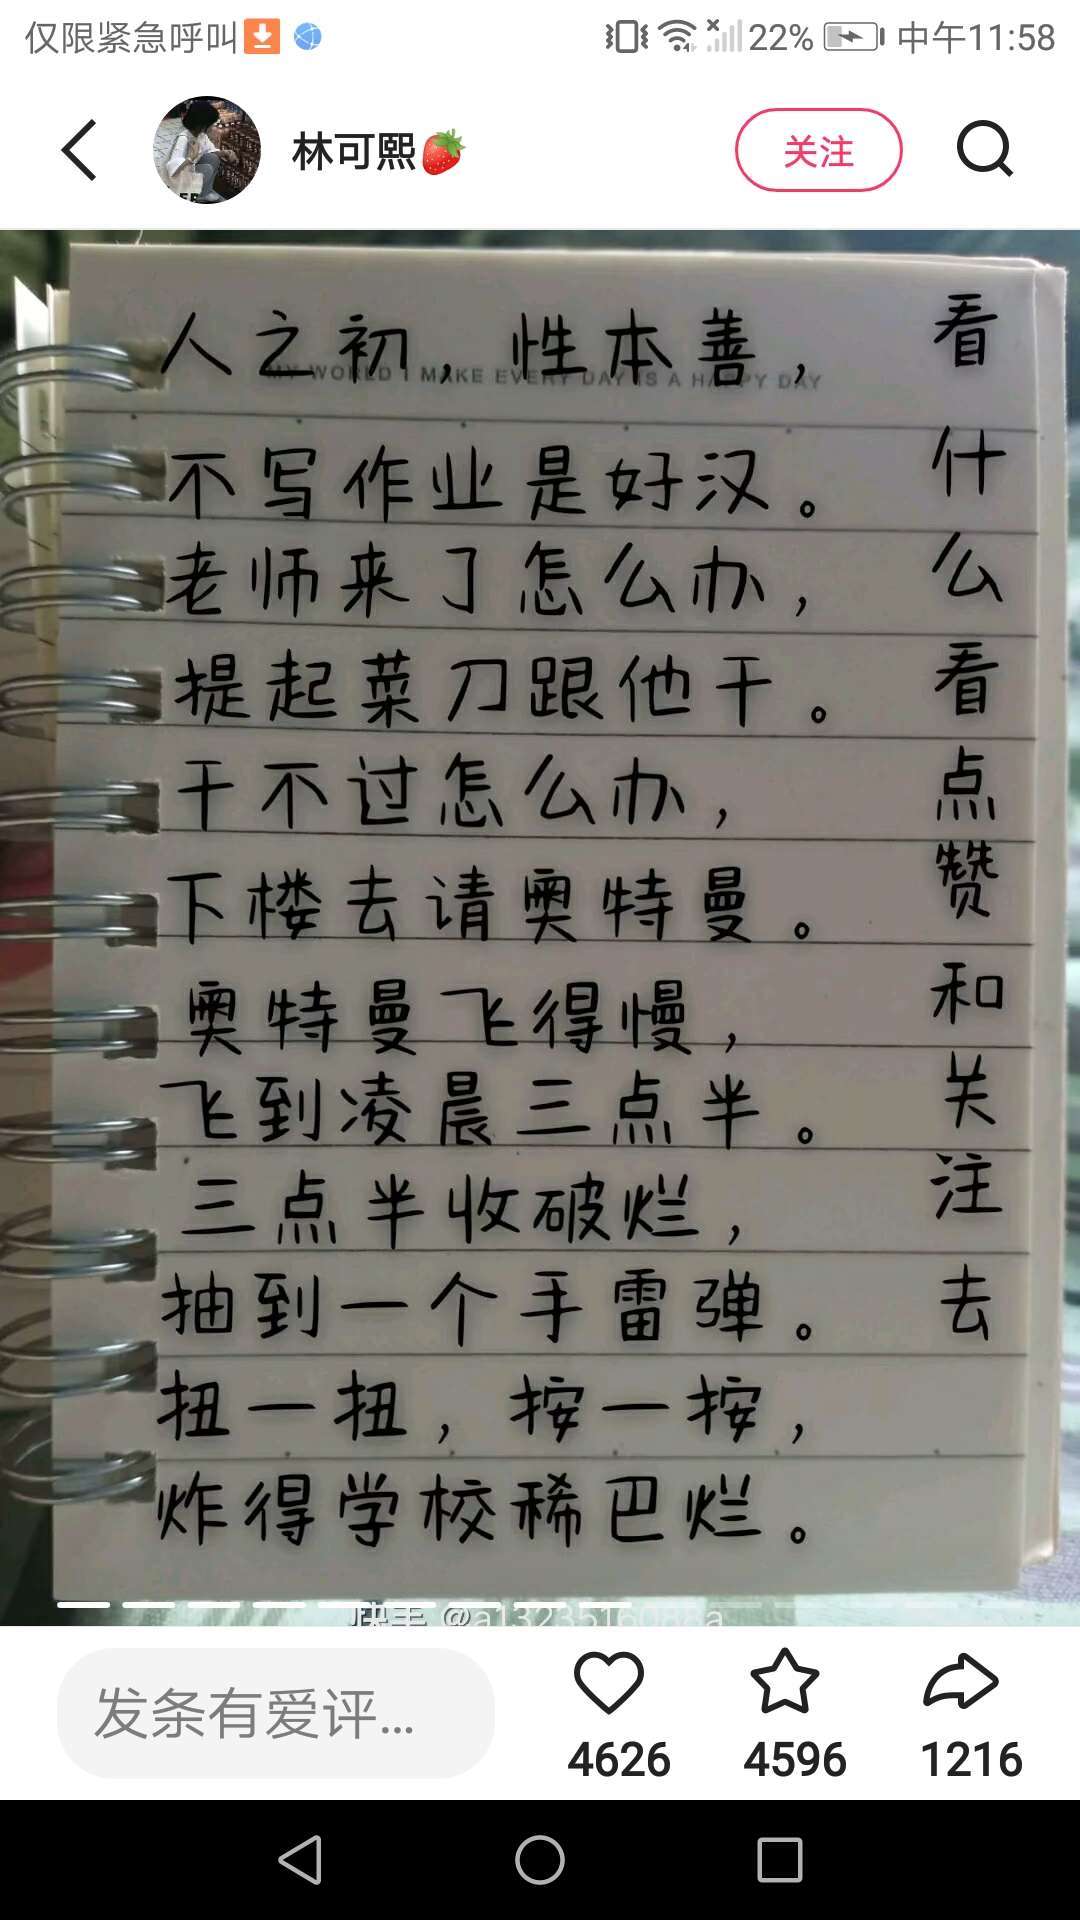 仅限紧急呼叫
22%
中午11:58
林可熙
关注
人之初，性本善，
MY WORLD I MAKE EVERY DAY IS A HAPPY DAY
不写作业是好汉。
老师来了怎么办，
提起菜刀跟他干。
干不过怎么办，
下楼去请奥特曼。
奥特曼飞得慢，
飞到凌晨三点半。
三点半收破烂，
抽到一个手雷弹。
扭一扭，按一按，
炸得学校稀巴烂。
看什么看点赞和关注去
快手
发条有爱评...
4626
4596
1216